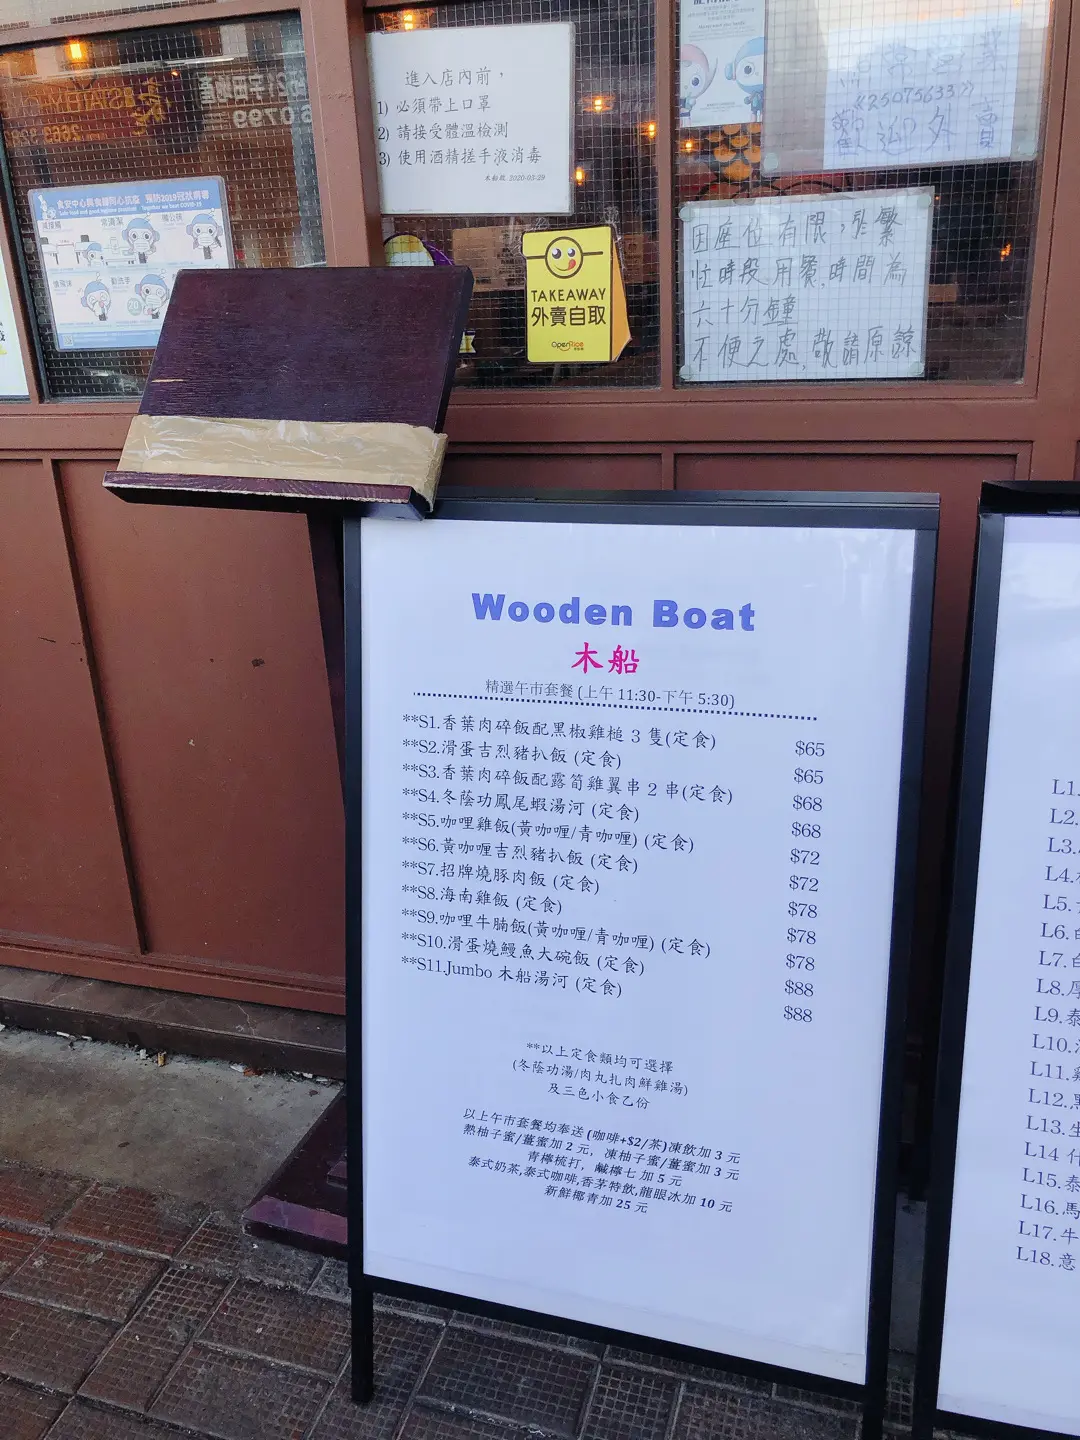 進入店內前，
1) 必須帶上口罩
2) 請接受體溫檢測
3) 使用酒精搓手液消毒
木船啟 2020-03-29
《25075633》
歡迎外賣
因座位有限，於繁
忙時段用餐時間為
六十分鐘
不便之處，敬請原諒
食安中心與食緣同心抗疫 預防2019冠狀病毒
TAKEAWAY
外賣自取
OpenRice
Wooden Boat
木船
精選午市套餐 (上午 11:30-下午 5:30)
**S1.香葉肉碎飯配黑椒雞槌 3 隻(定食) $65
**S2.滑蛋吉烈豬扒飯 (定食) $65
**S3.香葉肉碎飯配露筍雞翼串 2 串(定食) $68
**S4.冬蔭功鳳尾蝦湯河 (定食) $68
**S5.咖哩雞飯(黃咖喱/青咖喱) (定食) $72
**S6.黃咖喱吉烈豬扒飯 (定食) $72
**S7.招牌燒豚肉飯 (定食) $78
**S8.海南雞飯 (定食) $78
**S9.咖哩牛腩飯(黃咖喱/青咖喱) (定食) $78
**S10.滑蛋燒鰻魚大碗飯 (定食) $88
**S11.Jumbo 木船湯河 (定食) $88
**以上定食類均可選擇
(冬蔭功湯/肉丸扎肉鮮雞湯)
及三色小食乙份
以上午市套餐均奉送 (咖啡+$2/茶)凍飲加 3 元
熱柚子蜜/薑蜜加 2 元, 凍柚子蜜/薑蜜加 3 元
青檸梳打, 鹹檸七 加 5 元
泰式奶茶,泰式咖啡,香茅特飲,龍眼冰加 10 元
新鮮椰青加 25 元
L1.
L2.
L3.
L4.
L5.
L6.
L7.白
L8.厚
L9.泰
L10.
L11.雞
L12.黑
L13.生
L14 什
L15.泰
L16.馬
L17.牛
L18.意